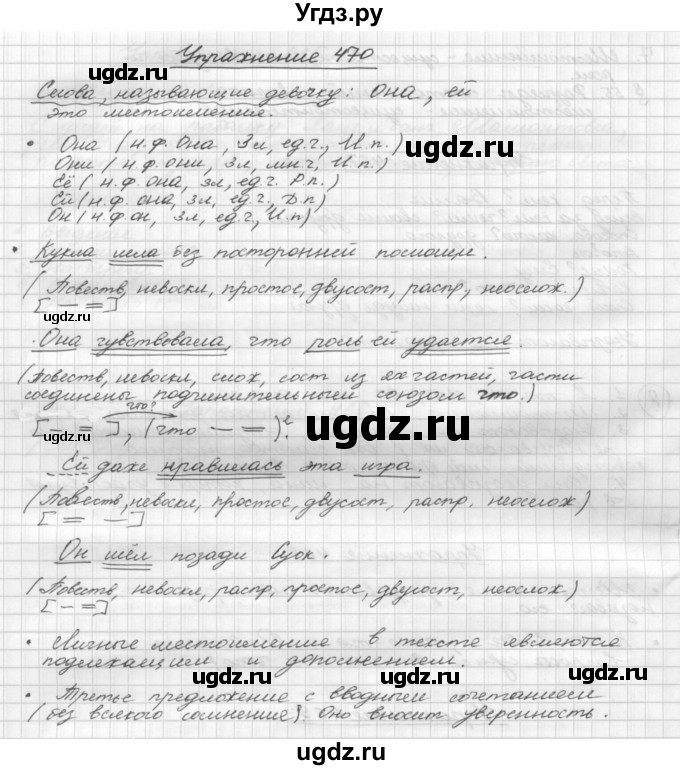 Угдз.ру
Упражнение 470
Слова, называющие девочку: она, ей
это местоимения.
• Она (н.ф. Она, 3л, ед.ч., И.п.)
Они (н.ф. они, 3л, мн.ч, И.п.)
Её (н.ф. она, 3л, ед.ч. Р.п.)
Ей (н.ф. она, 3л, ед.ч., Д.п)
Он (н.ф. он, 3л, ед.ч., И.п)
• Кукла шла без посторонней помощи.
(Повеств, невоскл, простое, двусост, распр, неослож.)
[ — = ]
Она чувствовала, что роль ей удается.
(Повеств, невоскл, слож, сост из 2х частей, части
соединены подчинительным союзом что.)
что?
[ — = ], (что — = )².
Ей даже нравилась эта игра.
(Повеств, невоскл, простое, двусост, распр. неослож)
[ = — ]
Он шёл позади Суок.
(Повеств, невоскл, распр, простое, двусост, неослож)
[ — = ]
• Личные местоимения в тексте являются
подлежащием и дополнением.
• Третье предложение с вводным сочетанием
(без всякого сомнения). Оно вносит уверенность.
uдgz.ru